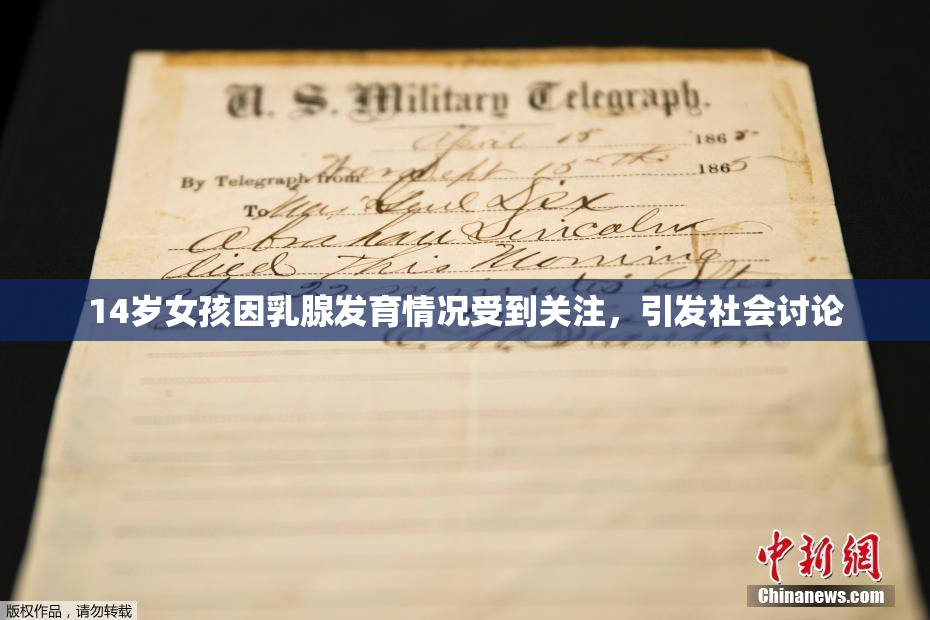 U. S. Military Telegraph.
April 15 1865
By Telegraph from War Dept 15th 1865
To Maj Genl Dix
Abraham Lincoln
died This Morning
at 22 minutes after
14岁女孩因乳腺发育情况受到关注，引发社会讨论
E. M. Stanton
中新網
Chinanews.com
版权作品，请勿转载